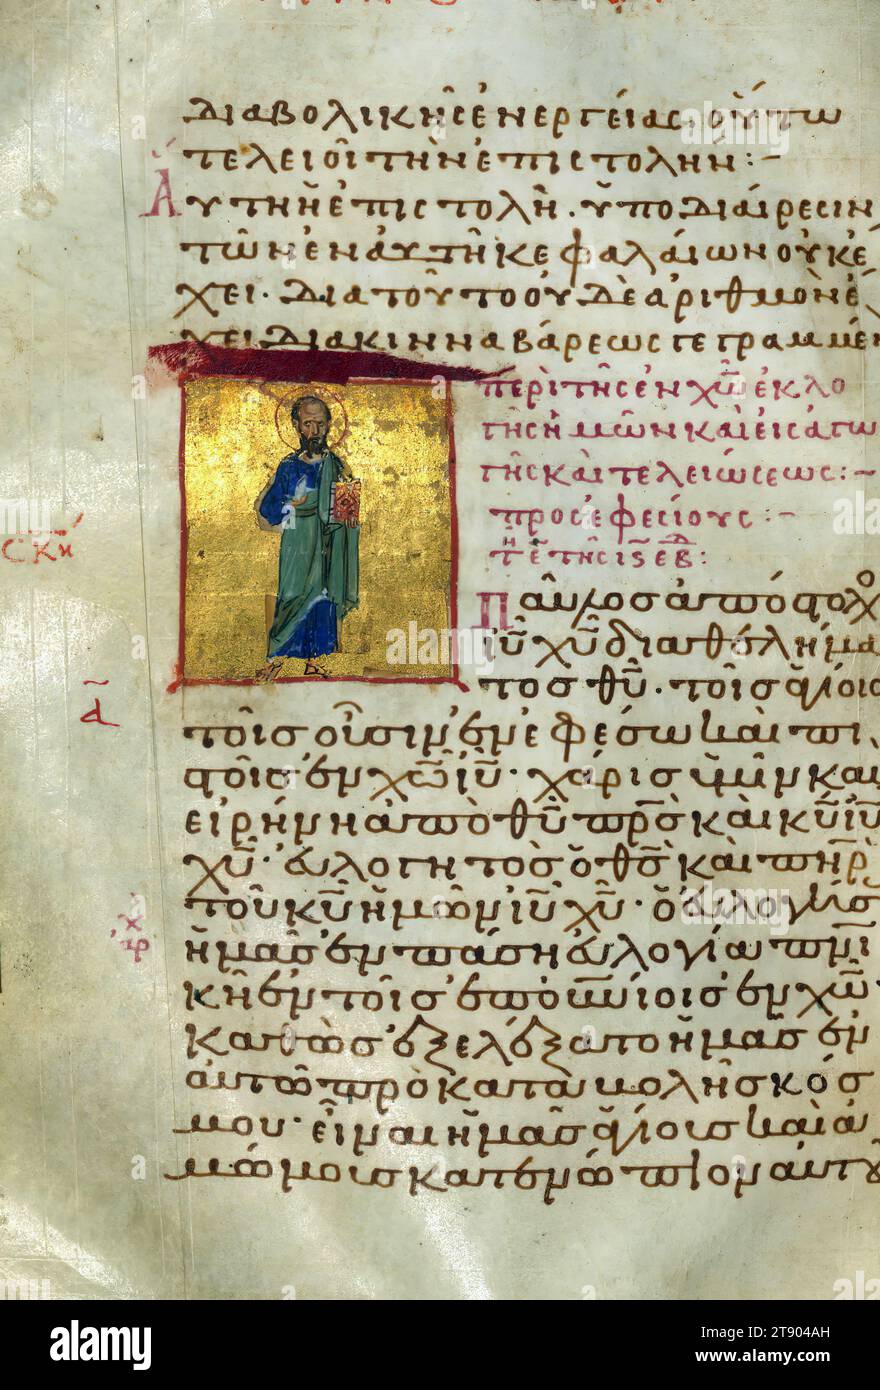 διαβολικῆς ἐνεργείας, οὕτω
τελειοῖ τὴν ἐπιστολήν :-
Αὕτη ἡ ἐπιστολὴ. ὑποδιαίρεσιν
τῶν ἐν αὐτῇ κεφαλαίων οὐκ ἔ
χει · διατοῦτο οὐδὲ ἀριθμὸν ἔ
χει διακινναβάρεως γεγραμμέν
περὶ τῆς ἐν χ̅ω̅ ἐκλο
γῆς ἡμῶν καὶ εἰσαγω
γῆς καὶ τελειώσεως :-
προς ἐφεσίους :-
σκη
Παῦλος ἀπόστολο
ι̅υ̅ χ̅υ̅ διαθελήμα
τος θ̅υ̅ · τοῖς ἁγίοις
α
τοῖς οὖσιν ἐν ἐφέσω καὶ πι
στοῖς ἐν χ̅ω̅ ι̅υ̅ · χάρις ὑμῖν και
εἰρήνη ἀπὸ θ̅υ̅ π̅ρ̅ς̅ καὶ κ̅υ̅ ι̅υ̅
χ̅υ̅ · εὐλογητὸς ὁ θ̅ς̅ καὶ π̅η̅ρ̅
τοῦ κ̅υ̅ ἡμῶν ι̅υ̅ χ̅υ̅ · ὁ εὐλογήσ
ἡμᾶς ἐν πάση εὐλογία π̅ν̅ι̅
κῆ ἐν τοῖς ἐπο̅υ̅ν̅ίοις ἐν χ̅ω̅
καθὼς ἐξελέξατο ἡμᾶς ἐν
αὐτῶ πρὸ καταβολῆς κόσ
μου · εἶναι ἡμᾶς ἁγίους καὶ ἀ
μώμους κατενώπιον αὐτου
alamy
Image ID: 2T904AH
www.alamy.com